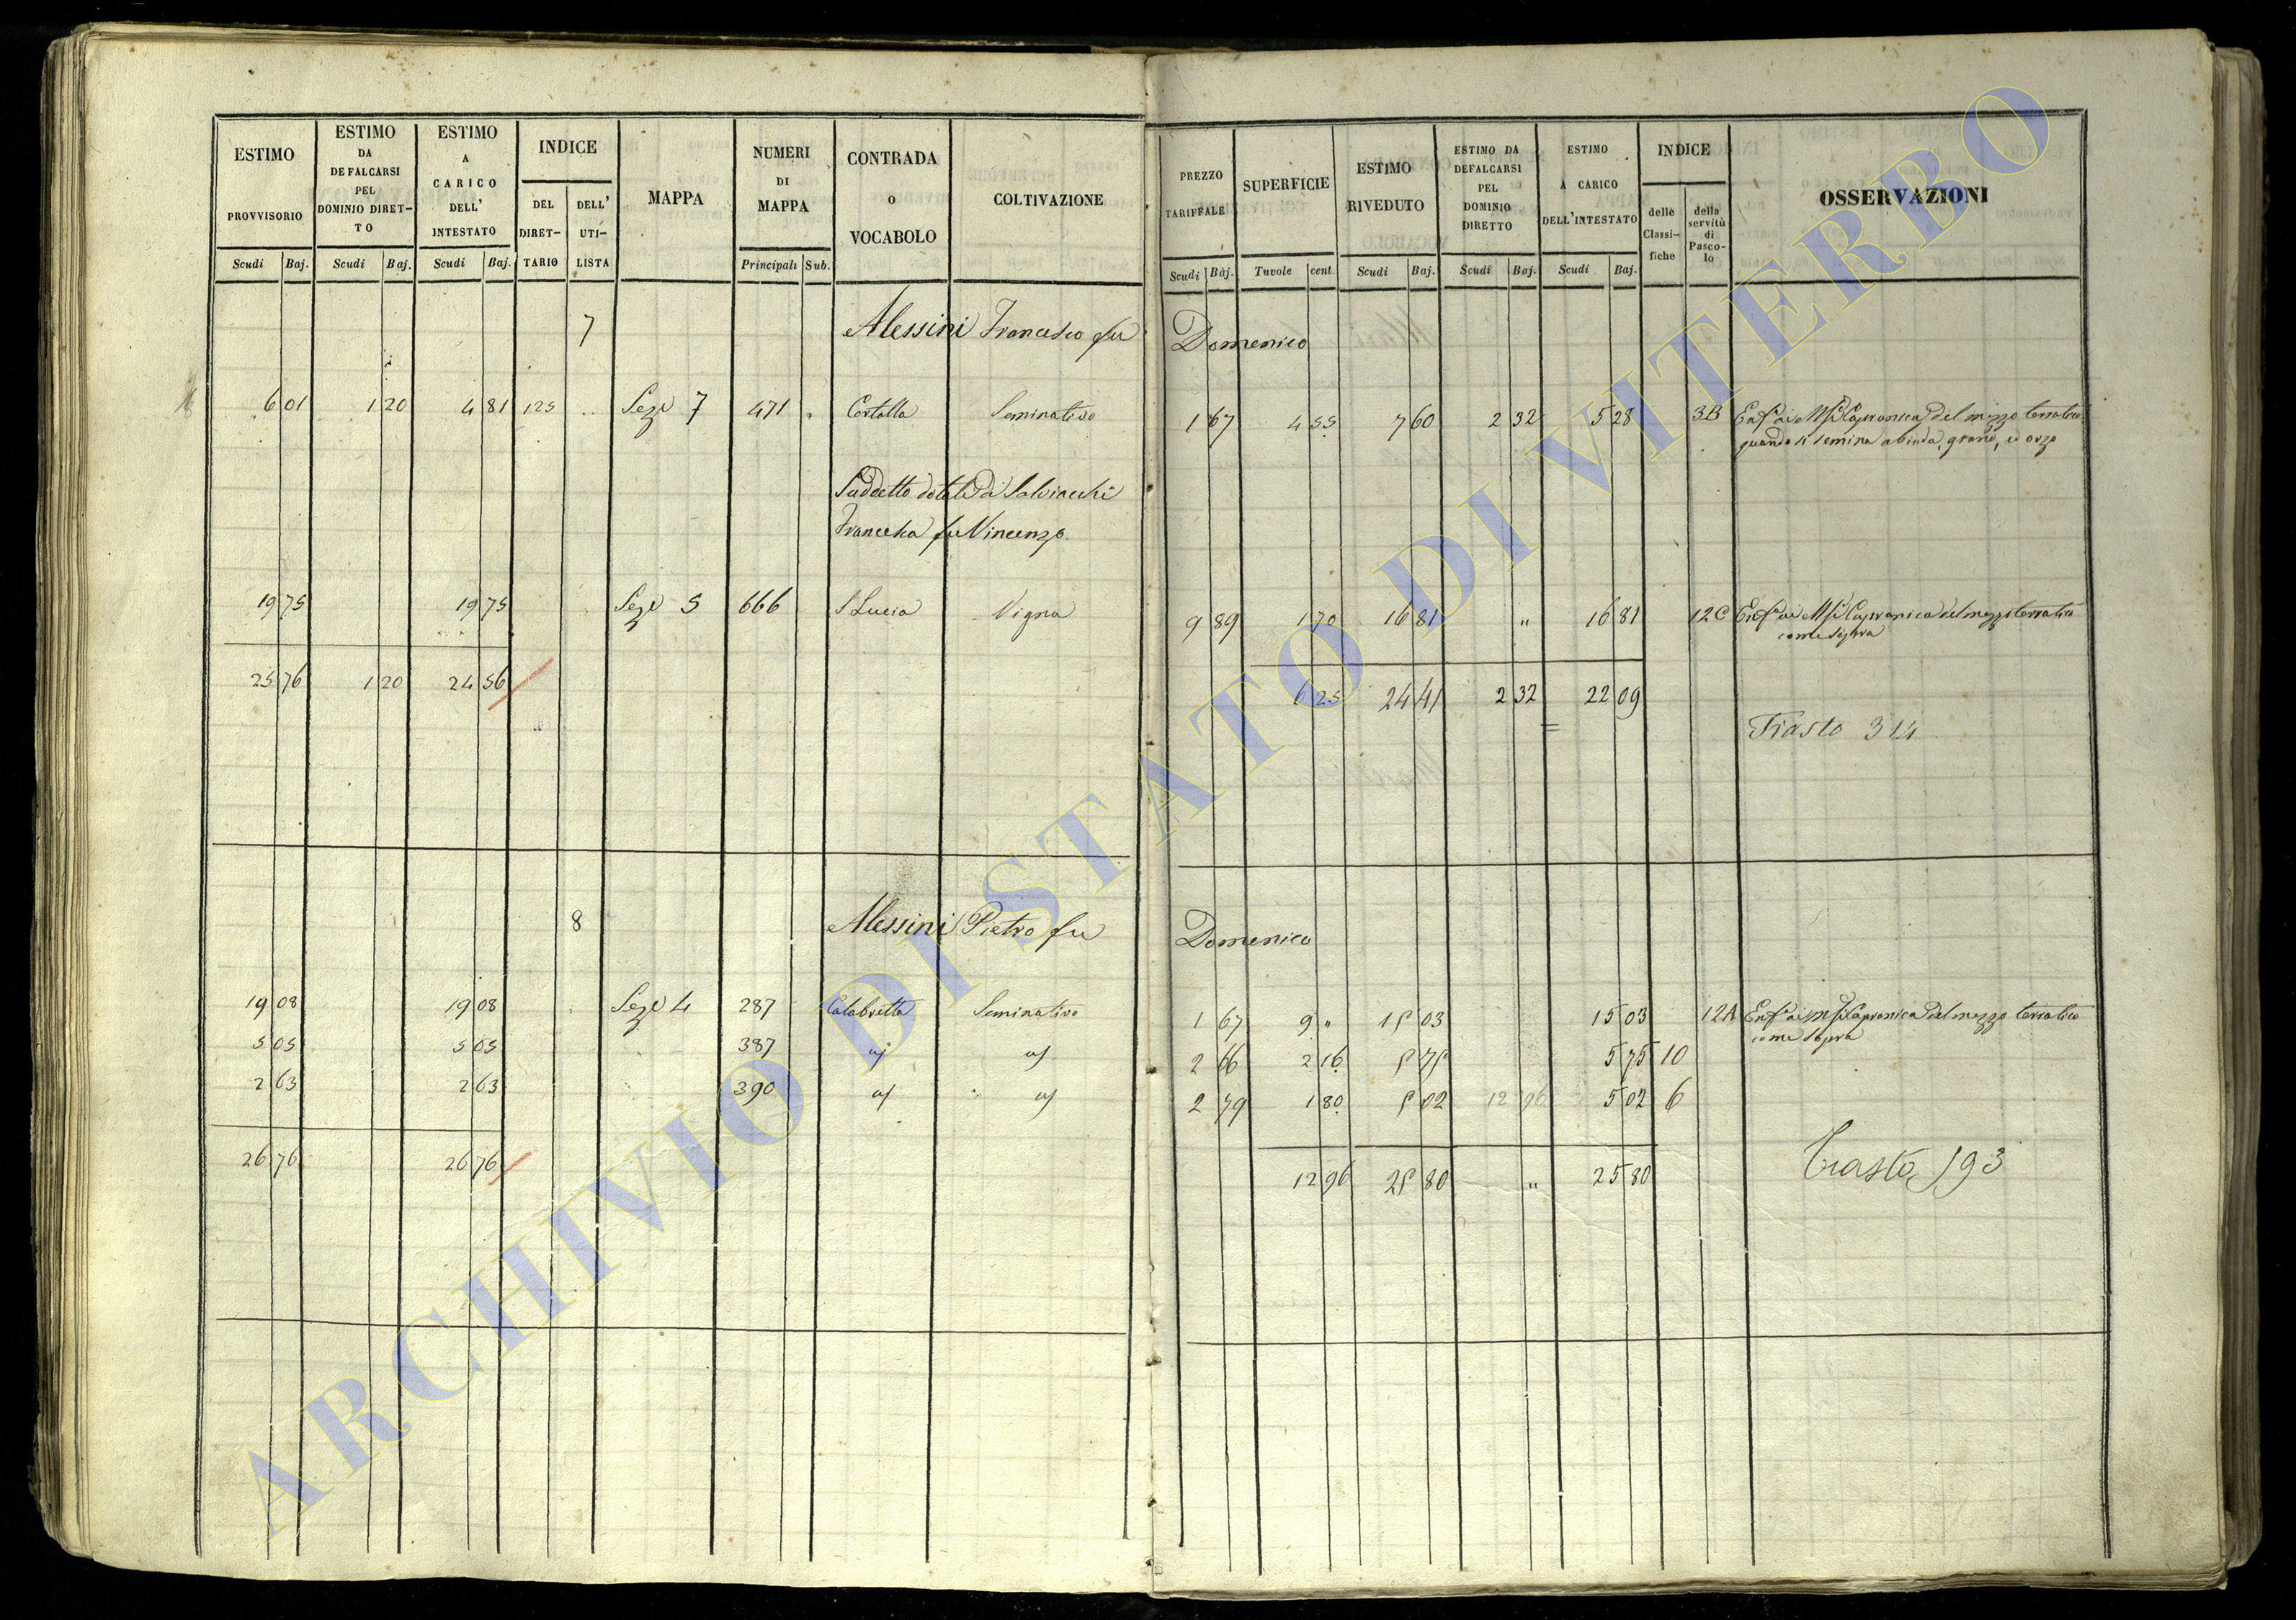 ESTIMO PROVVISORIO Scudi Baj.
ESTIMO DA DEFALCARSI PEL DOMINIO DIRETTO Scudi Baj.
ESTIMO A CARICO DELL' INTESTATO Scudi Baj.
INDICE DEL DIRETTARIO DELL' UTILISTA
MAPPA
NUMERI DI MAPPA Principali Sub.
CONTRADA O VOCABOLO
COLTIVAZIONE
PREZZO TARIFFALE Scudi Baj.
SUPERFICIE Tavole cent.
ESTIMO RIVEDUTO Scudi Baj.
ESTIMO DA DEFALCARSI PEL DOMINIO DIRETTO Scudi Baj.
ESTIMO A CARICO DELL'INTESTATO Scudi Baj.
INDICE delle Classifiche della servitù di Pascolo
OSSERVAZIONI
7 Alessini Francesco fu Domenico
6 01 1 20 4 81 125 Seze 7 471 Seminativo 1 67 4 55 7 60 2 32 5 28 3B del mezzo terratico
quando si semina a biada, grano, ed orzo
Suddetto dotale di Salviacchi
Francesca fu Vincenzo
19 75 19 75 Seze 5 666 S Lucia Vigna 9 89 1 70 16 81 " 16 81 12C Capranica del mezzo terratico
come sopra
25 76 1 20 24 56 6 25 24 41 2 32 22 09
Trasto 314
8 Alessini Pietro fu Domenico
19 08 19 08 Seze 4 287 Calabretta Seminativo 1 67 9 " 15 03 15 03 12A Capranica del mezzo terratico
come sopra
5 05 5 05 387 2 66 2 16 5 75 5 75 10
2 63 2 63 390 2 79 1 80 5 02 12 96 5 02 6
26 76 26 76 12 96 25 80 " 25 80
Trasto 193
ARCHIVIO DI STATO DI VITERBO